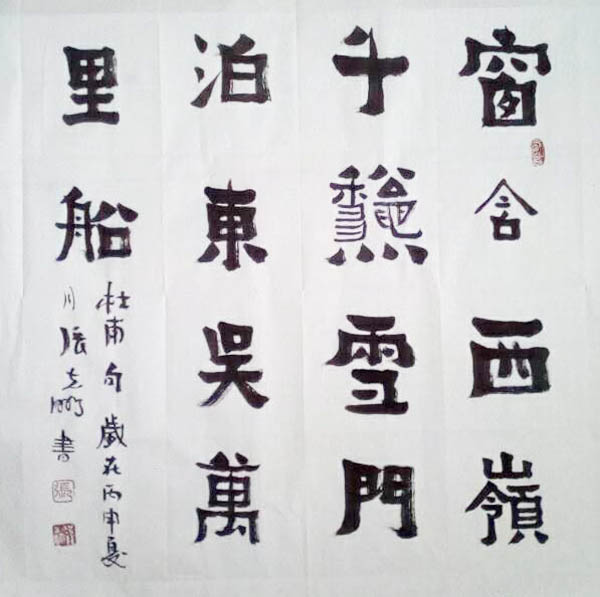 窗含西嶺
千龝雪門
泊東吳萬
里船
杜甫句 歲在丙申夏
月張 書